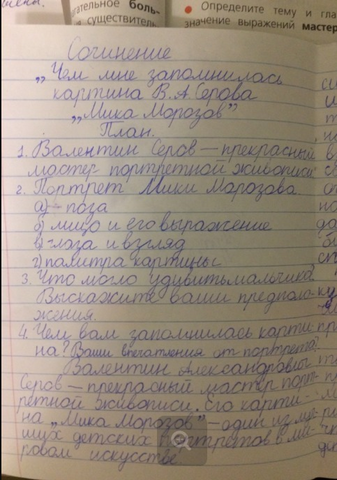 гательное боль-
существител
Определите тему и гла
значение выражений мастер
Сочинение
„Чем мне запомнилась
картина В.А.Серова
„Мика Морозов”
План.
1. Валентин Серов — прекрасный
мастер портретной живописи
2. Портрет Мики Морозова
а) поза
б) лицо и его выражение
в) глаза и взгляд
г) палитра картины
3. Что могло удивить мальчика?
Выскажите ваши предполо-
жения.
4. Чем вам запомнилась карти
на? Ваши впечатления от портрета.
Валентин Александрович
Серов — прекрасный мастер порт-
ретной живописи. Его карти-
на „Мика Морозов” — один из лу-
ших детских портретов в ми-
ровом искусстве.